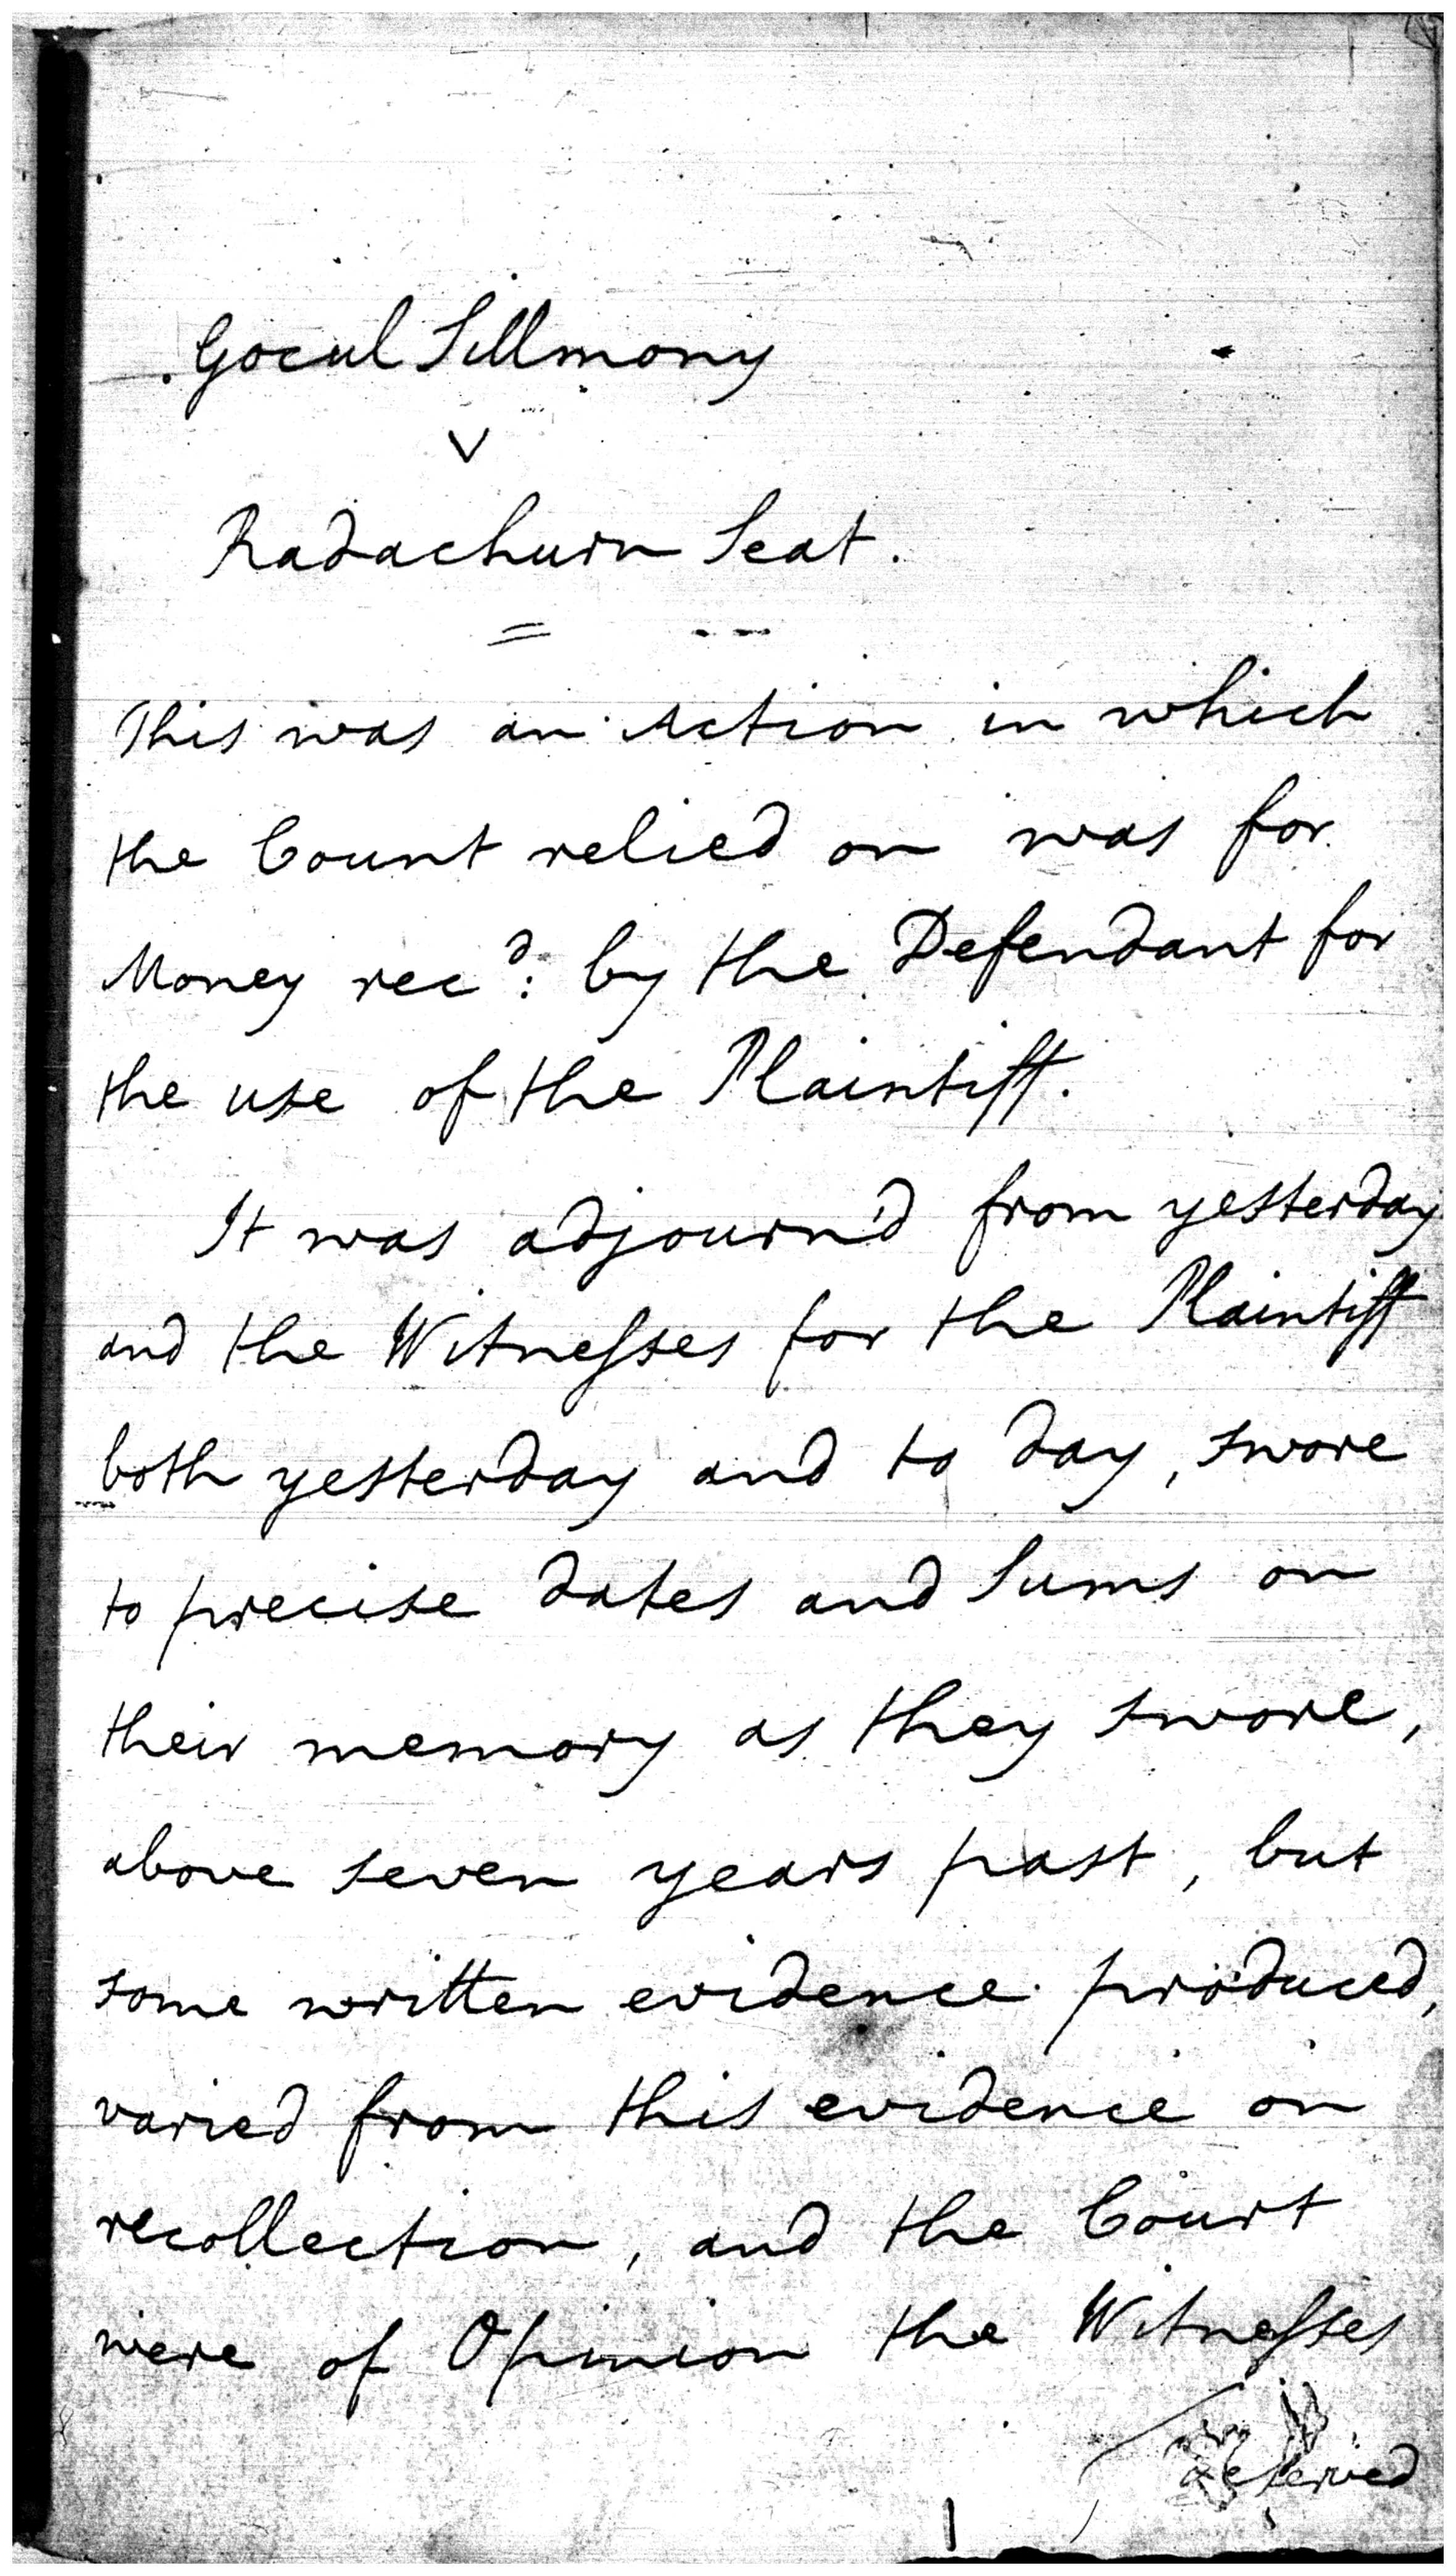 Gocul Sillmony
V
Radachurn Seat.
This was an Action in which
the Count relied on was for
Money rec^d: by the Defendant for
the use of the Plaintiff.
It was adjourn'd from yesterday
and the Witneſses for the Plaintiff
both yesterday and to day, swore
to precise dates and Sums on
their memory as they swore,
above seven years past, but
some written evidence produced,
varied from this evidence on
recollection, and the Court
were of Opinion the Witneſses
deserved